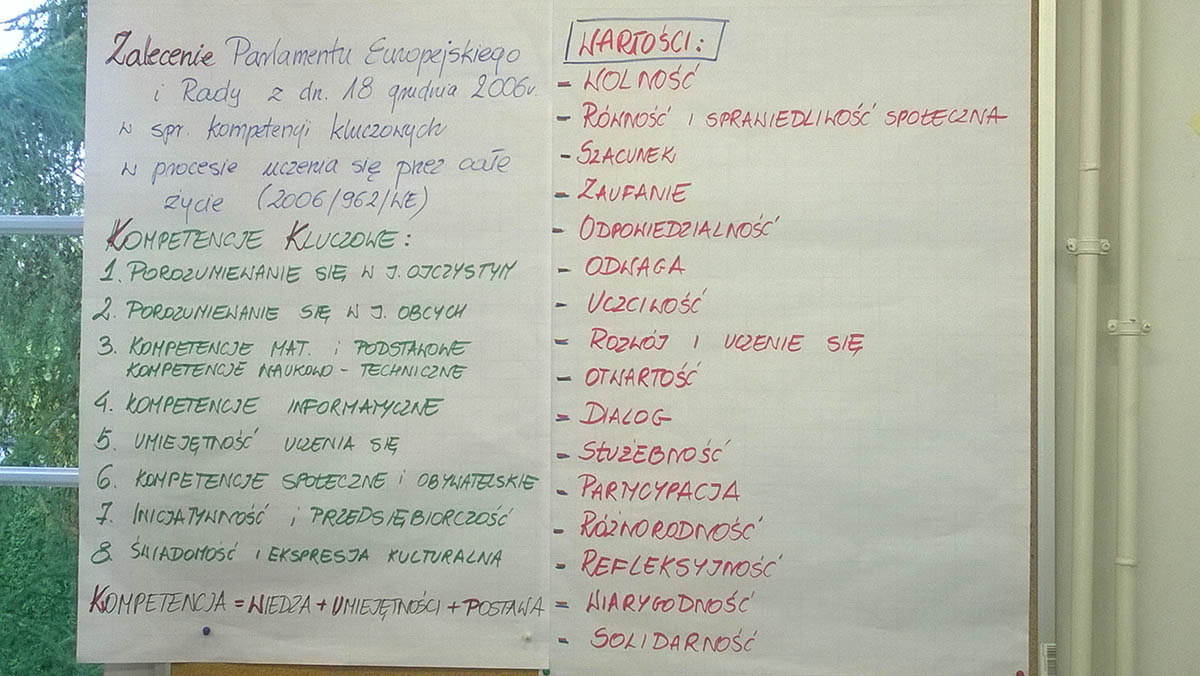 Zalecenie Parlamentu Europejskiego
i Rady z dn. 18 grudnia 2006r.
w spr. kompetencji kluczowych
w procesie uczenia się przez całe
życie (2006/962/WE)
KOMPETENCJE KLUCZOWE:
1. POROZUMIEWANIE SIĘ W J. OJCZYSTYM
2. POROZUMIEWANIE SIĘ W J. OBCYCH
3. KOMPETENCJE MAT. i PODSTAWOWE
KOMPETENCJE NAUKOWO - TECHNICZNE
4. KOMPETENCJE INFORMATYCZNE
5. UMIEJĘTNOŚĆ UCZENIA SIĘ
6. KOMPETENCJE SPOŁECZNE i OBYWATELSKIE
7. INICJATYWNOŚĆ i PRZEDSIĘBIORCZOŚĆ
8. ŚWIADOMOŚĆ I EKSPRESJA KULTURALNA
KOMPETENCJA = WIEDZA + UMIEJĘTNOŚCI + POSTAWA
WARTOŚCI:
- WOLNOŚĆ
- RÓWNOŚĆ I SPRAWIEDLIWOŚĆ SPOŁECZNA
- SZACUNEK
- ZAUFANIE
- ODPOWIEDZIALNOŚĆ
- ODWAGA
- UCZCIWOŚĆ
- ROZWÓJ I UCZENIE SIĘ
- OTWARTOŚĆ
- DIALOG
- SŁUŻEBNOŚĆ
- PARTYCYPACJA
- RÓŻNORODNOŚĆ
- REFLEKSYJNOŚĆ
- WIARYGODNOŚĆ
- SOLIDARNOŚĆ